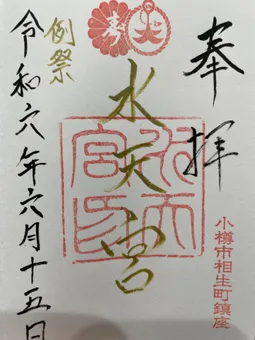 奉拝
小樽市相生町鎮座
水天宮
例祭
令和六年六月十五日